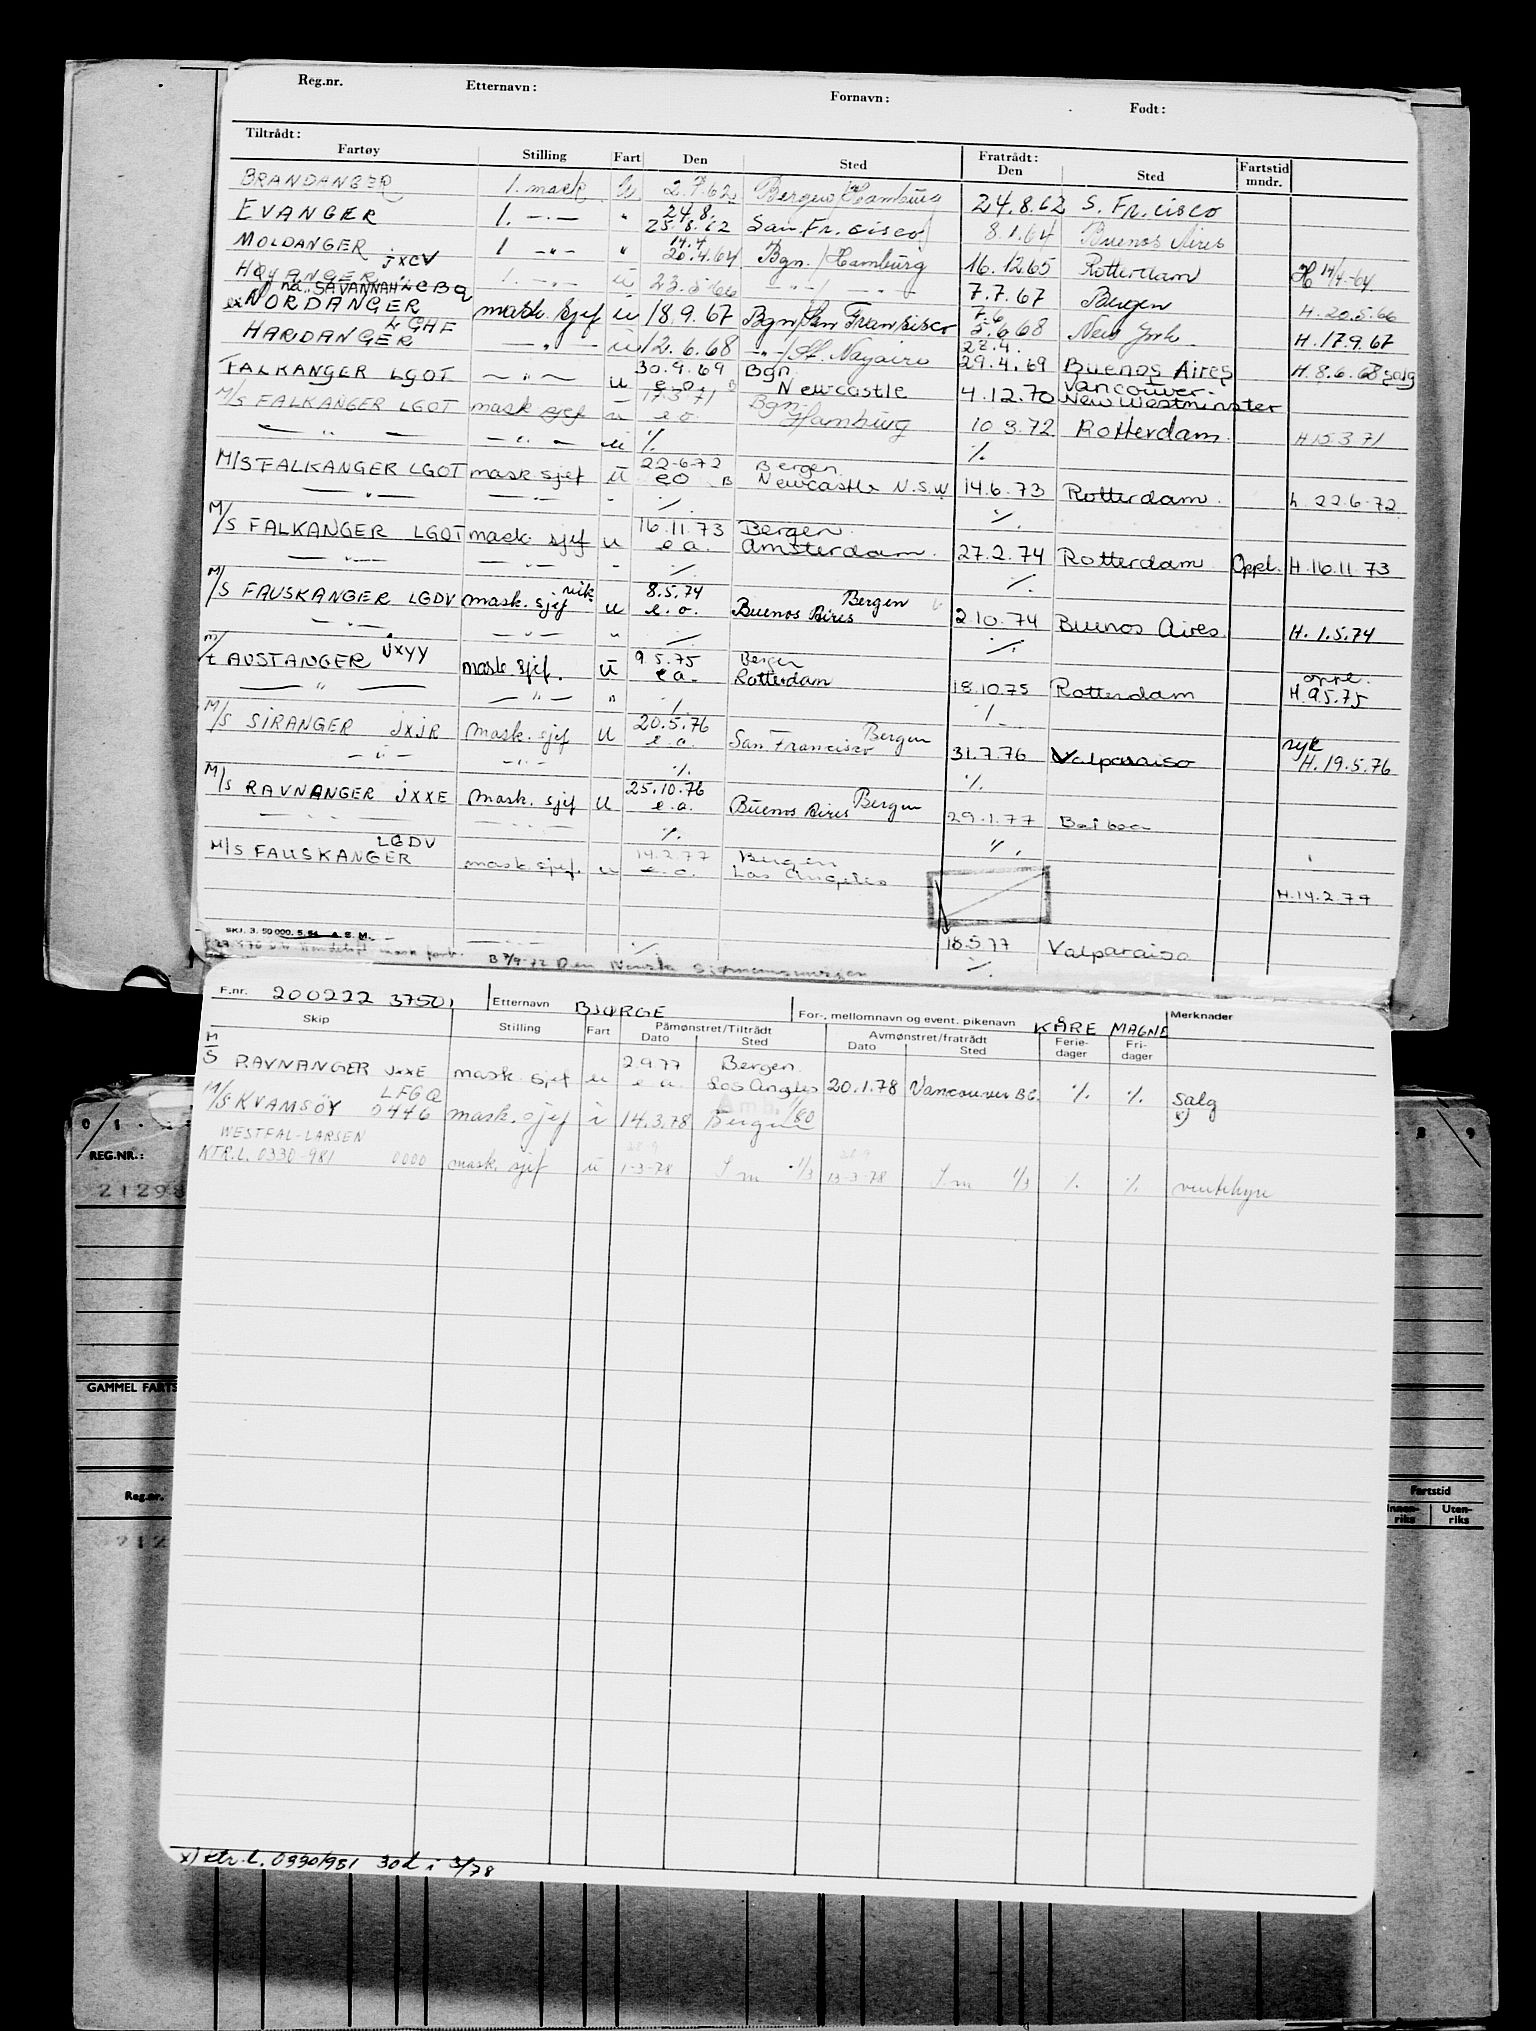 Reg.nr. Etternavn: Fornavn: Født:
Tiltrådt: Fratrådt:
Fartøy Stilling Fart Den Sted Den Sted Fartstid mndr.
BRANDANGER 1. mask u 2.7.62 Bergen/Hamburg 24.8.62 S. Fr. cisco
EVANGER 1. -"- " 24.8. 25.8.62 San Fr. cisco 8.1.64 Buenos Aires
MOLDANGER JXCV 1 -"- " 14.4 20.4.64 Bgn./Hamburg 16.12.65 Rotterdam H 14/4-64
HØYANGER LCBQ 1. -"- u 23.5.66 -"-/-"- 7.7.67 Bergen H. 20.5.66
nå. SAVANNAH
ex NORDANGER mask. sjef u 18.9.67 Bgn/San Fransisco 7.6 5.6.68 New York H. 17.9.67
HARDANGER LGHF -"- u 12.6.68 -"-/St. Nazaire 22.4. 29.4.69 Buenos Aires H. 8.6.68 salg
FALKANGER LGOT -"- u 30.9.69 e.o. B Bgn. Newcastle 4.12.70 Vancouver- New Westminster
M/S FALKANGER LGOT mask sjef u 17.3.71 e.o. Bgn. Hamburg 10.3.72 Rotterdam. H 15.3.71
— " — — " — u % %
M/S FALKANGER LGOT mask sjef u 22-6-72 eo B Bergen Newcastle N.S.W 14.6.73 Rotterdam. h. 22.6-72.
— " — — " — - % %
M/S FALKANGER LGOT mask sjef u 16.11.73 e.a. Bergen Amsterdam. 27.2.74 Rotterdam Oppl. H. 16.11.73
— " — — " — - % %
M/S FAUSKANGER LGDV mask. sjef vik. u 8.5.74 e.o. Bergen Buenos Aires 2.10.74 Buenos Aires. H. 1.5.74
— " — — " — " % %
m/t AUSTANGER JXYY mask. sjef. u 9.5.75 e a. Bergen Rotterdam 18.10.75 Rotterdam oppl. H. 9.5.75
— " — — " — " % %
M/S SIRANGER JXJR mask. sjef u 20.5.76 e.a. Bergen San Francisco 31.7.76 Valparaiso syk H. 19.5.76
— " — — " — % %
M/S RAVNANGER JXXE mask. sjef u 25.10.76 e.a. Bergen Buenos Aires 29.1.77 Balboa
— " — % %
M/S FAUSKANGER LGDV mask sjef. u 14.2.77 e.a. Bergen Los Angeles H. 14.2.77
18.5.77 Valparaiso
SKJ. 3. 50 000. 5.54 A.E.M.
% %
B 7/9-72 Den Norske
F.nr. 200222 37501 Etternavn BJØRGE For-, mellomnavn og event. pikenavn KÅRE MAGNE Merknader
Skip Stilling Fart Påmønstret/Tiltrådt Dato Sted Avmønstret/fratrådt Dato Sted Ferie-dager Fri-dager
M/S RAVNANGER JXXE mask. sjef u 2.9.77 e a. Bergen. Los Angeles 20.1.78 Vancouver BC. % % Salg
M/S KVAMSÖY LFGQ 0446 mask. sjef i 14.3.78 Bergen Amb. 1/80 x)
WESTFAL-LARSEN
KTR.L. 0330-981 0000 mask. sjef u 28.9 1-3-78 Sm 1/3 28.9 13-3-78 Sm 1/3 % % ventehyre
x) ktr.l. 0330/981 30d i 3/78
0 1
8 9
REG.NR.:
21298
GAMMEL FARTS
Reg.nr.
212
Fartstid
Innen-riks Uten-riks